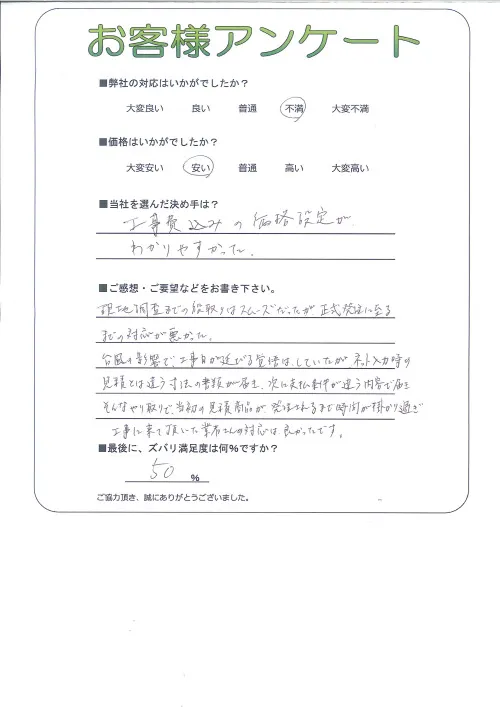 お客様アンケート
■弊社の対応はいかがでしたか？
大変良い 良い 普通 不満 大変不満
■価格はいかがでしたか？
大変安い 安い 普通 高い 大変高い
■当社を選んだ決め手は？
工事費込みの価格設定が
わかりやすかった。
■ご感想・ご要望などをお書き下さい。
現地調査までの段取りはスムーズだったが正式発注に至る
までの対応が悪かった。
台風の影響で、工事日が延びる覚悟は、していたがネット入力時の
見積とは違う寸法の書類が届き、次に支払条件が違う内容で届き
そんなやり取りで、当初の見積商品が発注されるまで時間が掛かり過ぎ
工事に来て頂いた業者さんの対応は良かったです。
■最後に、ズバリ満足度は何％ですか？
50 %
ご協力頂き、誠にありがとうございました。